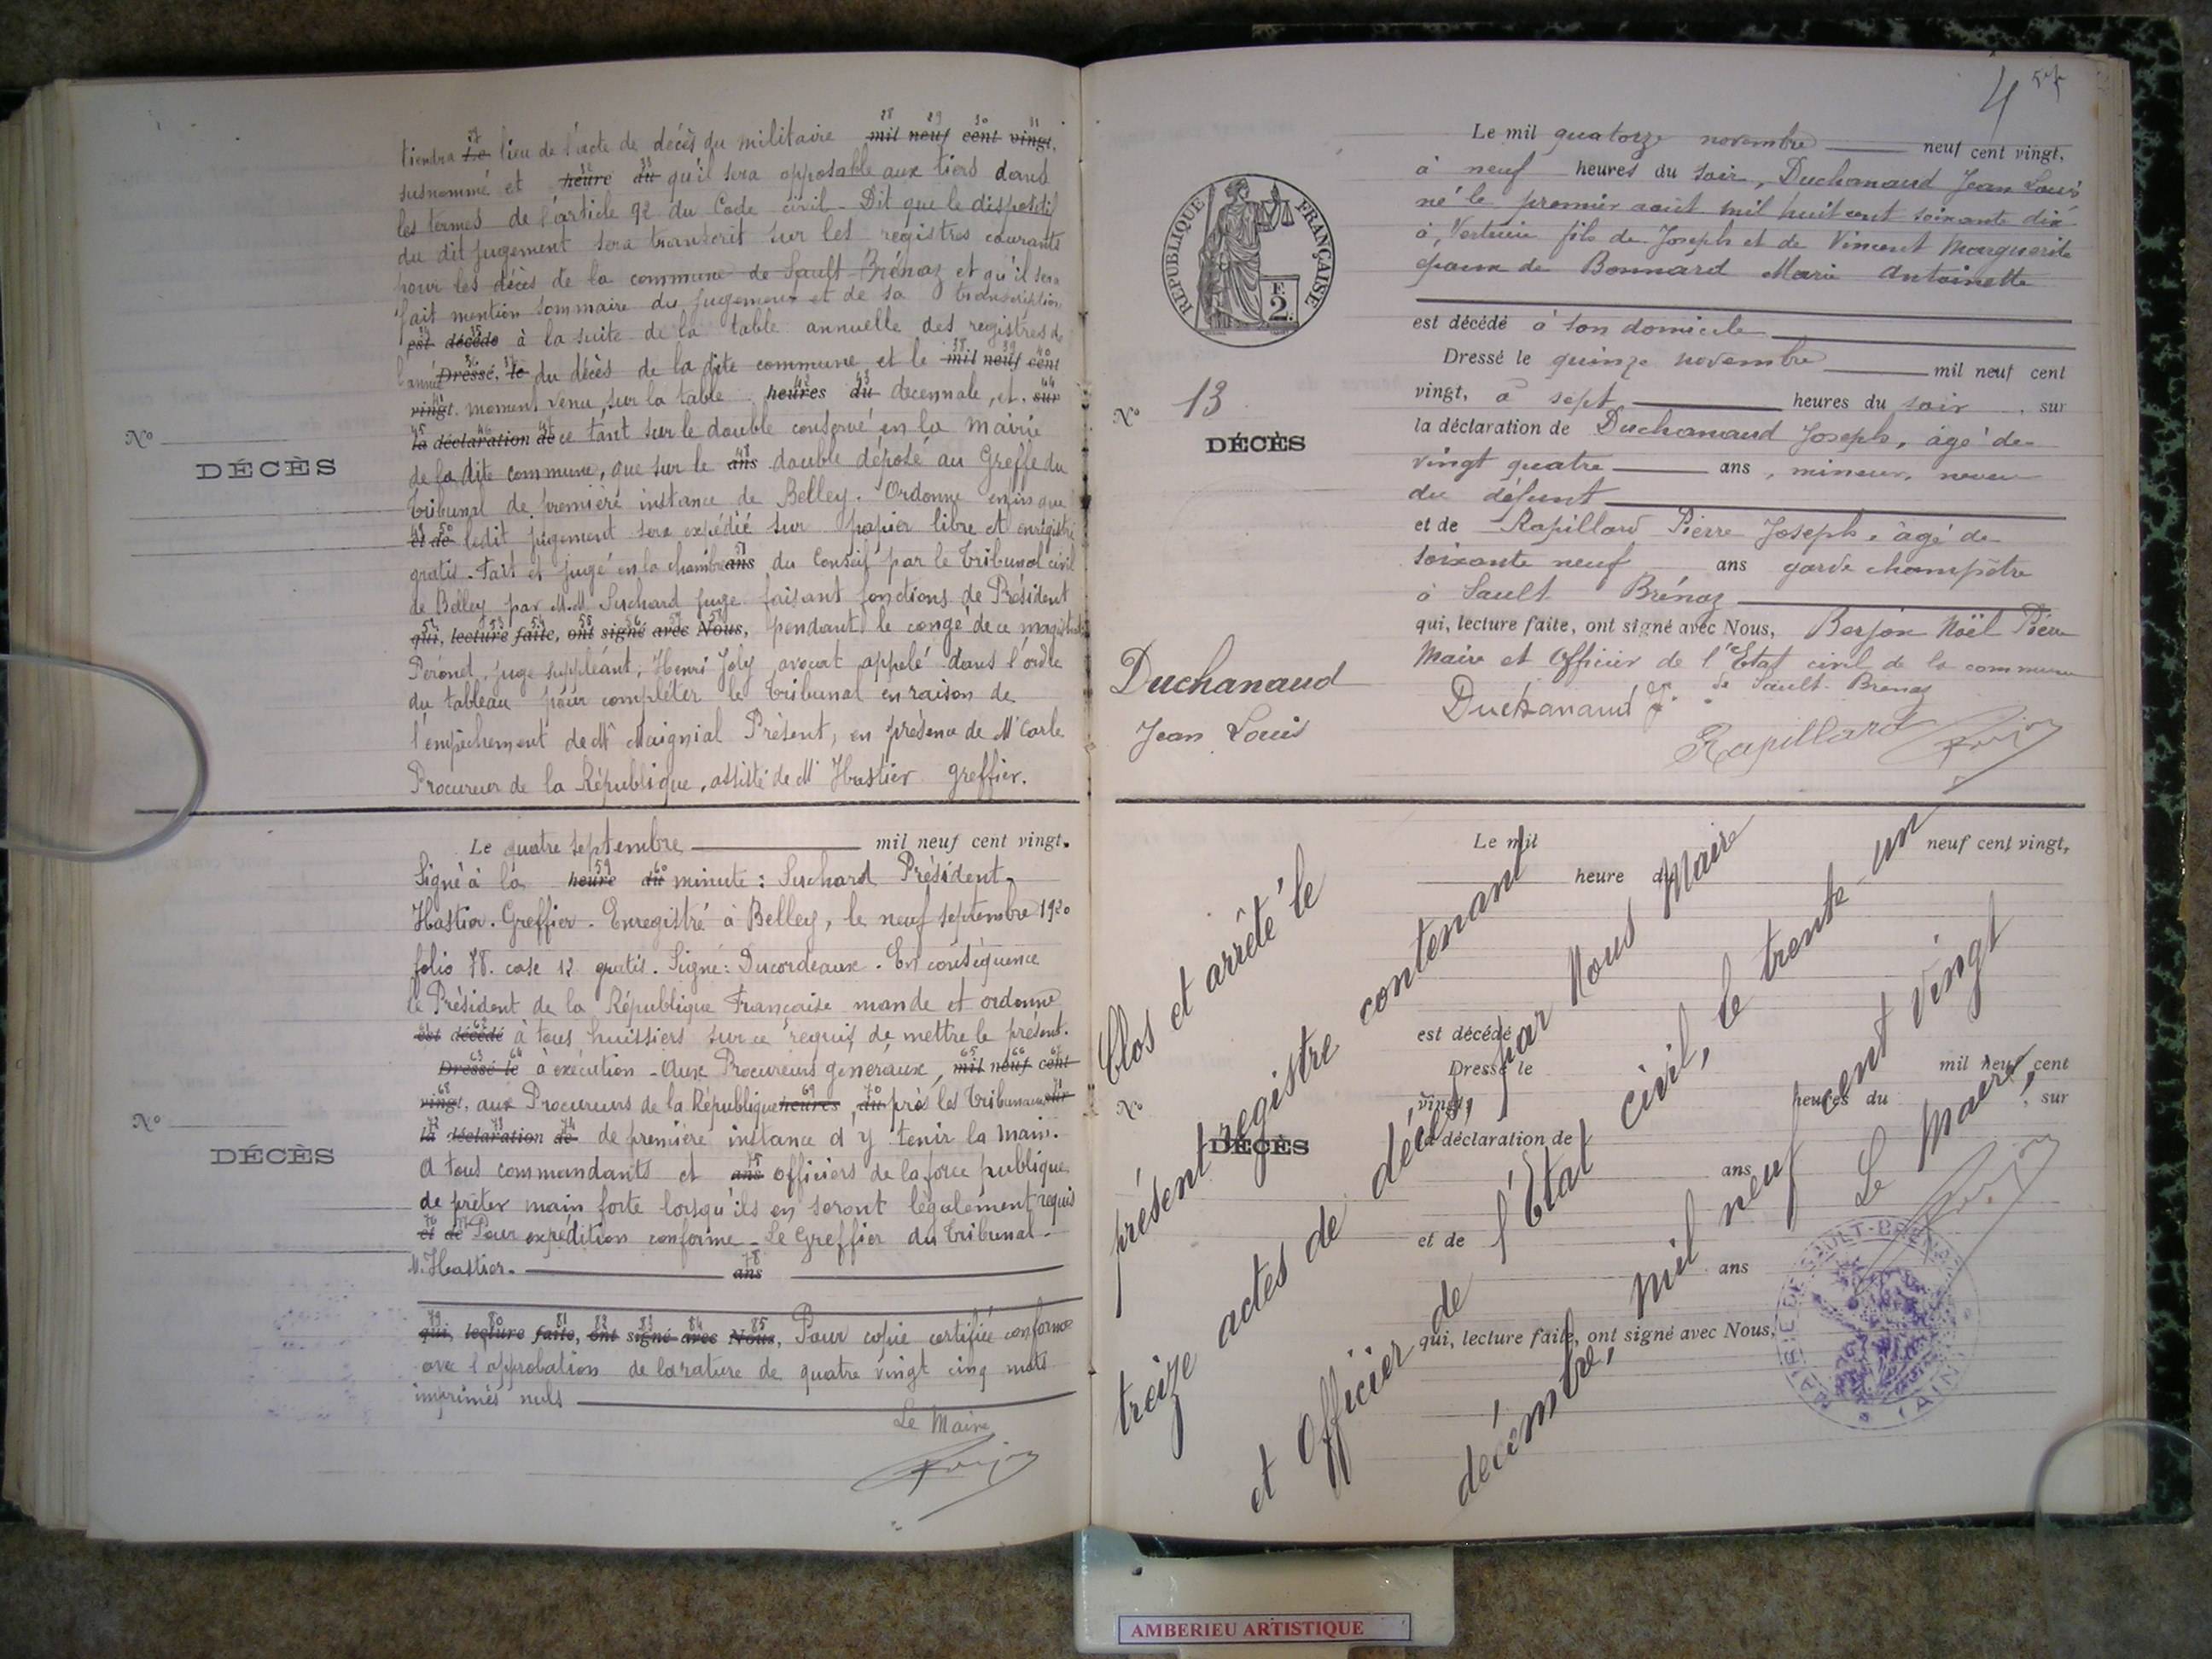 tiendra Le lieu de l'acte de décès du militaire mil neuf cent vingt,
susnommé et heure du qu'il sera opposable aux tiers dans
les termes de l'article 92 du Code civil - Dit que le dispositif
du dit jugement sera transcrit sur les registres courants
pour les décès de la commune de Sault-Brénaz et qu'il sera
fait mention sommaire du jugement et de sa transcription
est décédé à la suite de la table annuelle des registres de
l'année Dressé, le du décès de la dite commune et le mil neuf cent
vingt. moment venu, sur la table heures du decennale, et. sur
la déclaration de ce tant sur le double conservé en la mairie
de la dite commune, que sur le ans double déposé au Greffe du
Tribunal de première instance de Belley. Ordonne enfin que
et de ledit jugement sera expédié sur papier libre et enregistré
gratis. Fait et jugé en la chambre ans du Conseil par le Tribunal civil
de Belley par M.M. Suchard juge faisant fonctions de Président
qui, lecture faite, ont signé avec Nous, pendant le congé de ce magistrat
Péronet, juge suppléant, Henri Joly avocat appelé dans l'ordre
du tableau pour compléter le Tribunal en raison de
l'empêchement de Mr Maignial Présent, en présence de Mr Carle
Procureur de la République, assisté de Mr Hastier greffier.
No
DÉCÈS
Le quatre septembre mil neuf cent vingt.
Signé à la heure du minute : Suchard Président,
Hastier. Greffier. Enregistré à Belley, le neuf septembre 1920
folio 78. case 12 gratis. Signé : Ducordeaux. En conséquence
le Président de la République Française mande et ordonne
est décédé à tous huissiers sur ce requis de mettre le présent.
Dressé le à exécution - Aux Procureurs généraux, mil neuf cent
vingt, aux Procureurs de la République heures, du près les Tribunaux sur
la déclaration de de première instance d'y tenir la main.
A tous commandants et ans officiers de la force publique
de prêter main forte lorsqu'ils en seront légalement requis
et de Pour expédition conforme - Le Greffier du Tribunal -
Hastier. ans
qui, lecture faite, ont signé avec Nous, Pour copie certifiée conforme
avec l'approbation de la rature de quatre vingt cinq mots
imprimés nuls
Le Maire
No
DÉCÈS
4
RÉPUBLIQUE FRANÇAISE
F. 2.
No 13
DÉCÈS
Duchanaud
Jean Louis
Le mil quatorze novembre neuf cent vingt,
à neuf heures du soir, Duchanaud Jean Louis
né le premier août mil huit cent soixante dix
à, Vertrieu fils de Joseph et de Vincent Marguerite
époux de Bonnard Marie Antoinette
est décédé à son domicile
Dressé le quinze novembre mil neuf cent
vingt, à sept heures du soir, sur
la déclaration de Duchanaud Joseph, âgé de
vingt quatre ans, mineur, neveu
du défunt
et de Rapillard Pierre Joseph, âgé de
soixante neuf ans garde champêtre
à Sault Brénaz
qui, lecture faite, ont signé avec Nous, Berjon Noël Pierre
Maire et Officier de l'Etat civil de la commune
de Sault-Brenaz
Duchanaud J.
Rapillard
No
DÉCÈS
Le mil neuf cent vingt,
heure du
est décédé
Dressé le mil neuf cent
vingt, heures du , sur
la déclaration de
ans
et de
ans
qui, lecture faite, ont signé avec Nous,
Clos et arrêté le
présent registre contenant
treize actes de décès, par Nous Maire
et Officier de l'Etat civil, le trente-un
décembre, mil neuf cent vingt
Le Maire,
MAIRIE DE SAULT-BRENAZ
(AIN)
AMBERIEU ARTISTIQUE